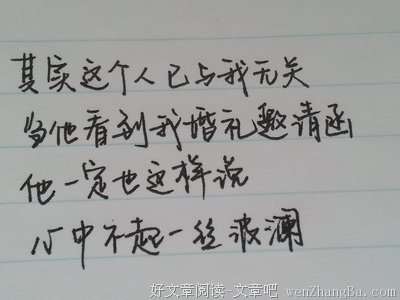 其实这个人已与我无关
当他看到我婚礼邀请函
他一定也这样说
心中不起一丝波澜
好文章阅读-文章吧 wenZhangBa.com